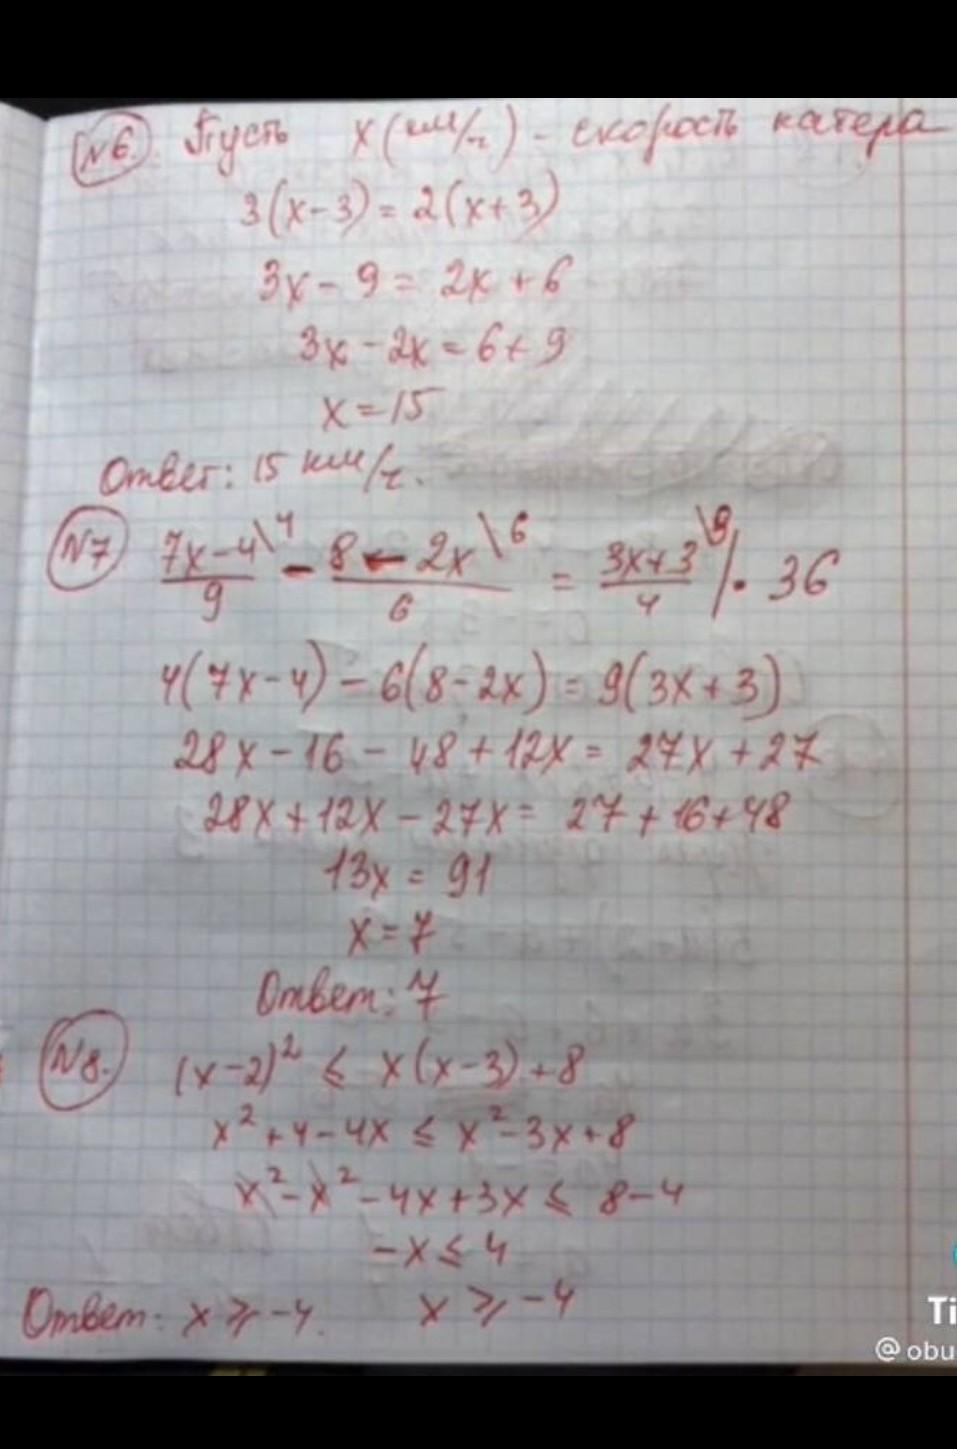 №6. Пусть x (км/ч) - скорость катера
3(x-3) = 2(x+3)
3x - 9 = 2x + 6
3x - 2x = 6 + 9
x = 15
Ответ: 15 км/ч.
№7 (7x-4\4)/9 - (8 - 2x\6)/6 = (3x+3\9)/4 | · 36
4(7x-4) - 6(8-2x) = 9(3x+3)
28x - 16 - 48 + 12x = 27x + 27
28x + 12x - 27x = 27 + 16 + 48
13x = 91
x = 7
Ответ: 7
№8. (x-2)² ≤ x(x-3) + 8
x² + 4 - 4x ≤ x² - 3x + 8
x² - x² - 4x + 3x ≤ 8 - 4
-x ≤ 4
Ответ: x ≥ -4. x ≥ -4
Ti
@obu